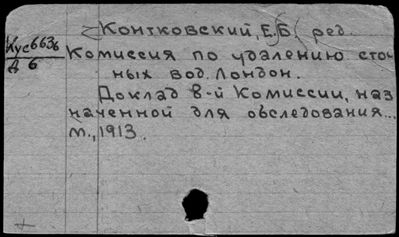 Контковский, Е.Б. ред.
Кус6636
Д 6
Комиссия по удалению сточ
ных вод. Лондон.
Доклад 8-й Комиссии, наз
наченной для обследования...
М., 1913.